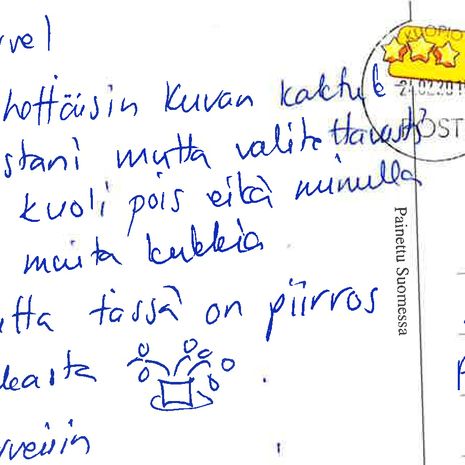 rve!
hottäisin kuvan kaktuk
stani mutta valitettavasti
kuoli pois eikä minulla
muita kukkia
utta tässä on piirros
kasta
rveisin
KUOPIO
POSTI
Painettu Suomessa